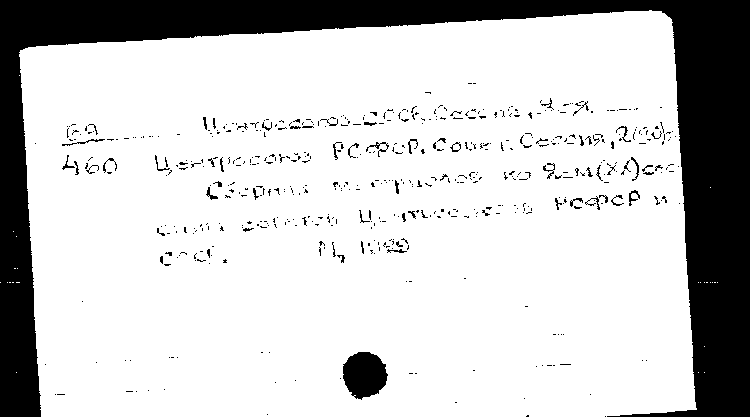 Центросоюз СССР. Сессия, 2-ая.
460 Центросоюз РСФСР. Совет. Сессия, 2(20)
Сборник материалов ко 2-ым (XX) сес
сиям советов Центросоюзов РСФСР и
СССР. М, 1929